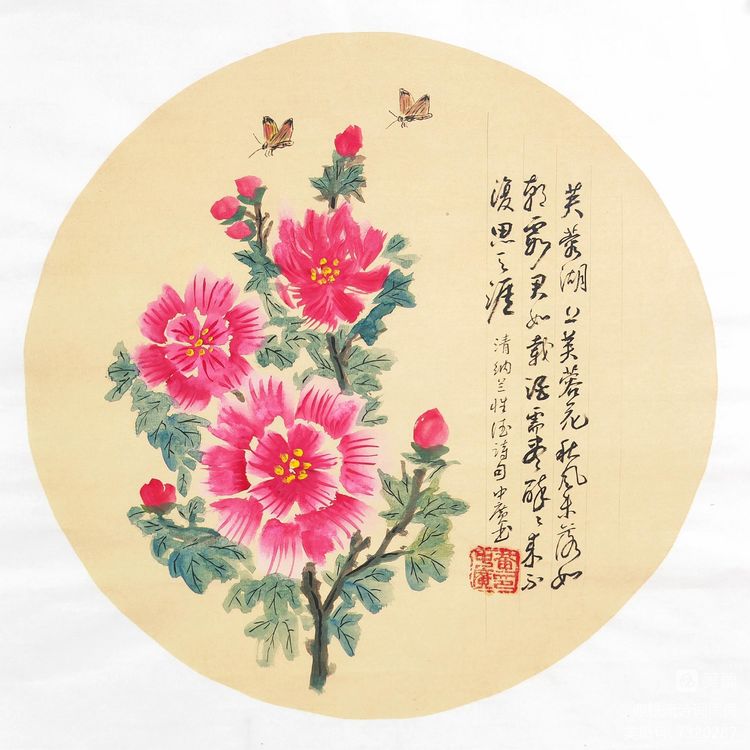 芙蓉湖上芙蓉花秋风未落如
朝霞君如载酒需尽醉〻来不
復思天涯
清纳兰性德诗句中廣画
美篇